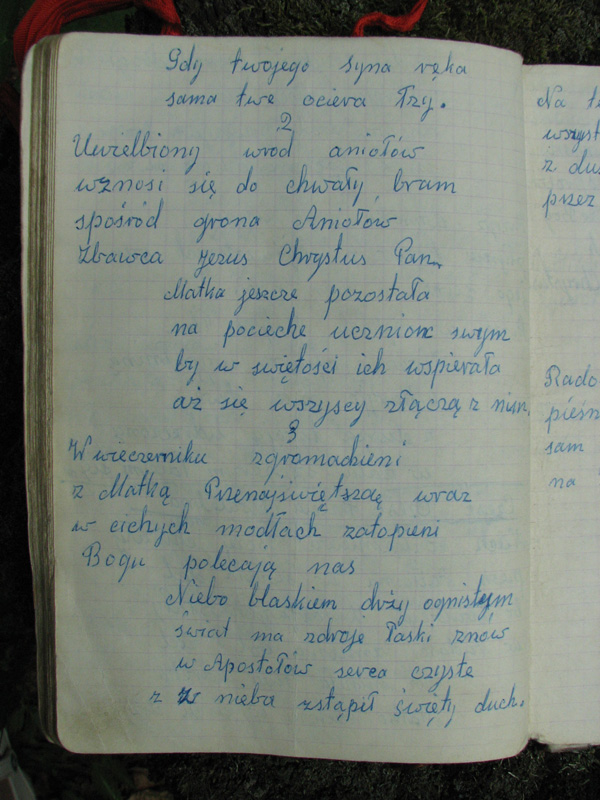 Gdy twojego syna ręka
sama twe ociera łzy.
2
Uwielbiony wród aniołów
wznosi się do chwały bram
spośród grona Aniołów
Zbawca Jezus Chrystus Pan,
Matka jeszcze pozostała
na pocieche uczniom swym
by w swiętości ich wspierała
aż się wszyscy złączą z nim,
3
W wieczerniku zgromadzieni
z Matką Przenajświętszą wraz
w cichych modłach zatopieni
Bogu polecają nas
Niebo blaskiem drży ognistym
świat ma zdroje łaski znów
w Apostołów serca czyste
z nieba zstąpił święty duch.
Na
z
przez
Rado
sam
na